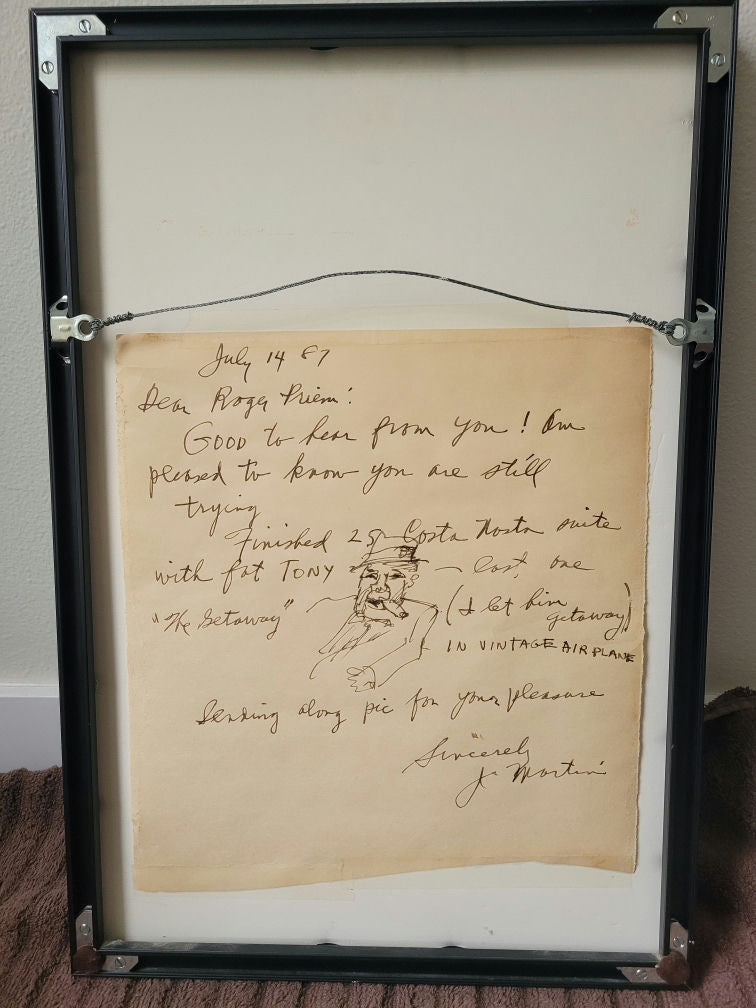 July 14 87
Dear Roger Priem:
GOOD to hear from you! Am
pleased to know you are still
trying
Finished 25 Costa Nosta suite
with fat TONY — last one
"The Getaway" (I let him getaway)
IN VINTAGE AIRPLANE
Sending along pic for your pleasure
Sincerely
Jo Martini